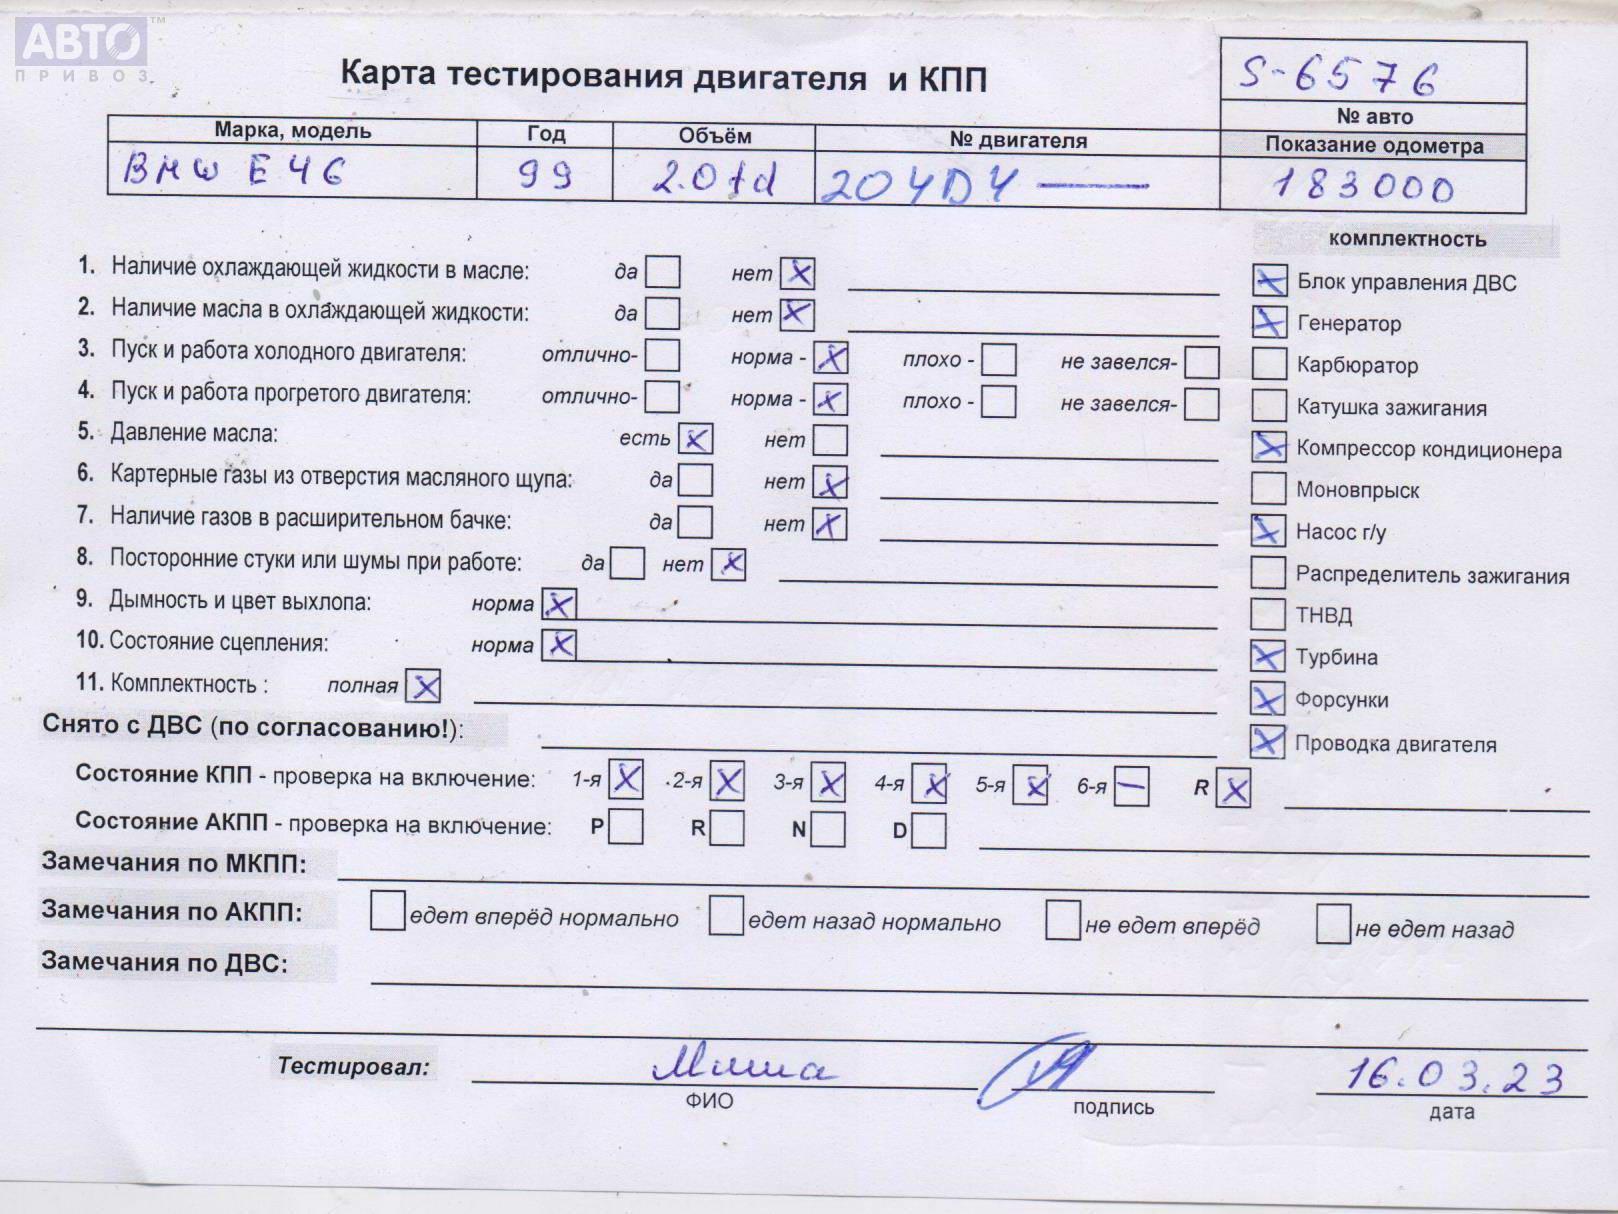 АВТО™
ПРИВОЗ
Карта тестирования двигателя и КПП
S-6576
№ авто
Марка, модель Год Объём № двигателя Показание одометра
BMW E46 99 2.0td 204D4 — 183000
комплектность
1. Наличие охлаждающей жидкости в масле: да нет X
2. Наличие масла в охлаждающей жидкости: да нет X
3. Пуск и работа холодного двигателя: отлично- норма - X плохо - не завелся-
4. Пуск и работа прогретого двигателя: отлично- норма - X плохо - не завелся-
5. Давление масла: есть X нет
6. Картерные газы из отверстия масляного щупа: да нет X
7. Наличие газов в расширительном бачке: да нет X
8. Посторонние стуки или шумы при работе: да нет X
9. Дымность и цвет выхлопа: норма X
10. Состояние сцепления: норма X
11. Комплектность : полная X
X Блок управления ДВС
X Генератор
Карбюратор
Катушка зажигания
X Компрессор кондиционера
Моновпрыск
X Насос г/у
Распределитель зажигания
ТНВД
X Турбина
X Форсунки
X Проводка двигателя
Снято с ДВС (по согласованию!):
Состояние КПП - проверка на включение: 1-я X 2-я X 3-я X 4-я X 5-я X 6-я — R X
Состояние АКПП - проверка на включение: P R N D
Замечания по МКПП:
Замечания по АКПП: едет вперёд нормально едет назад нормально не едет вперёд не едет назад
Замечания по ДВС:
Тестировал: Миша 16.03.23
ФИО подпись дата